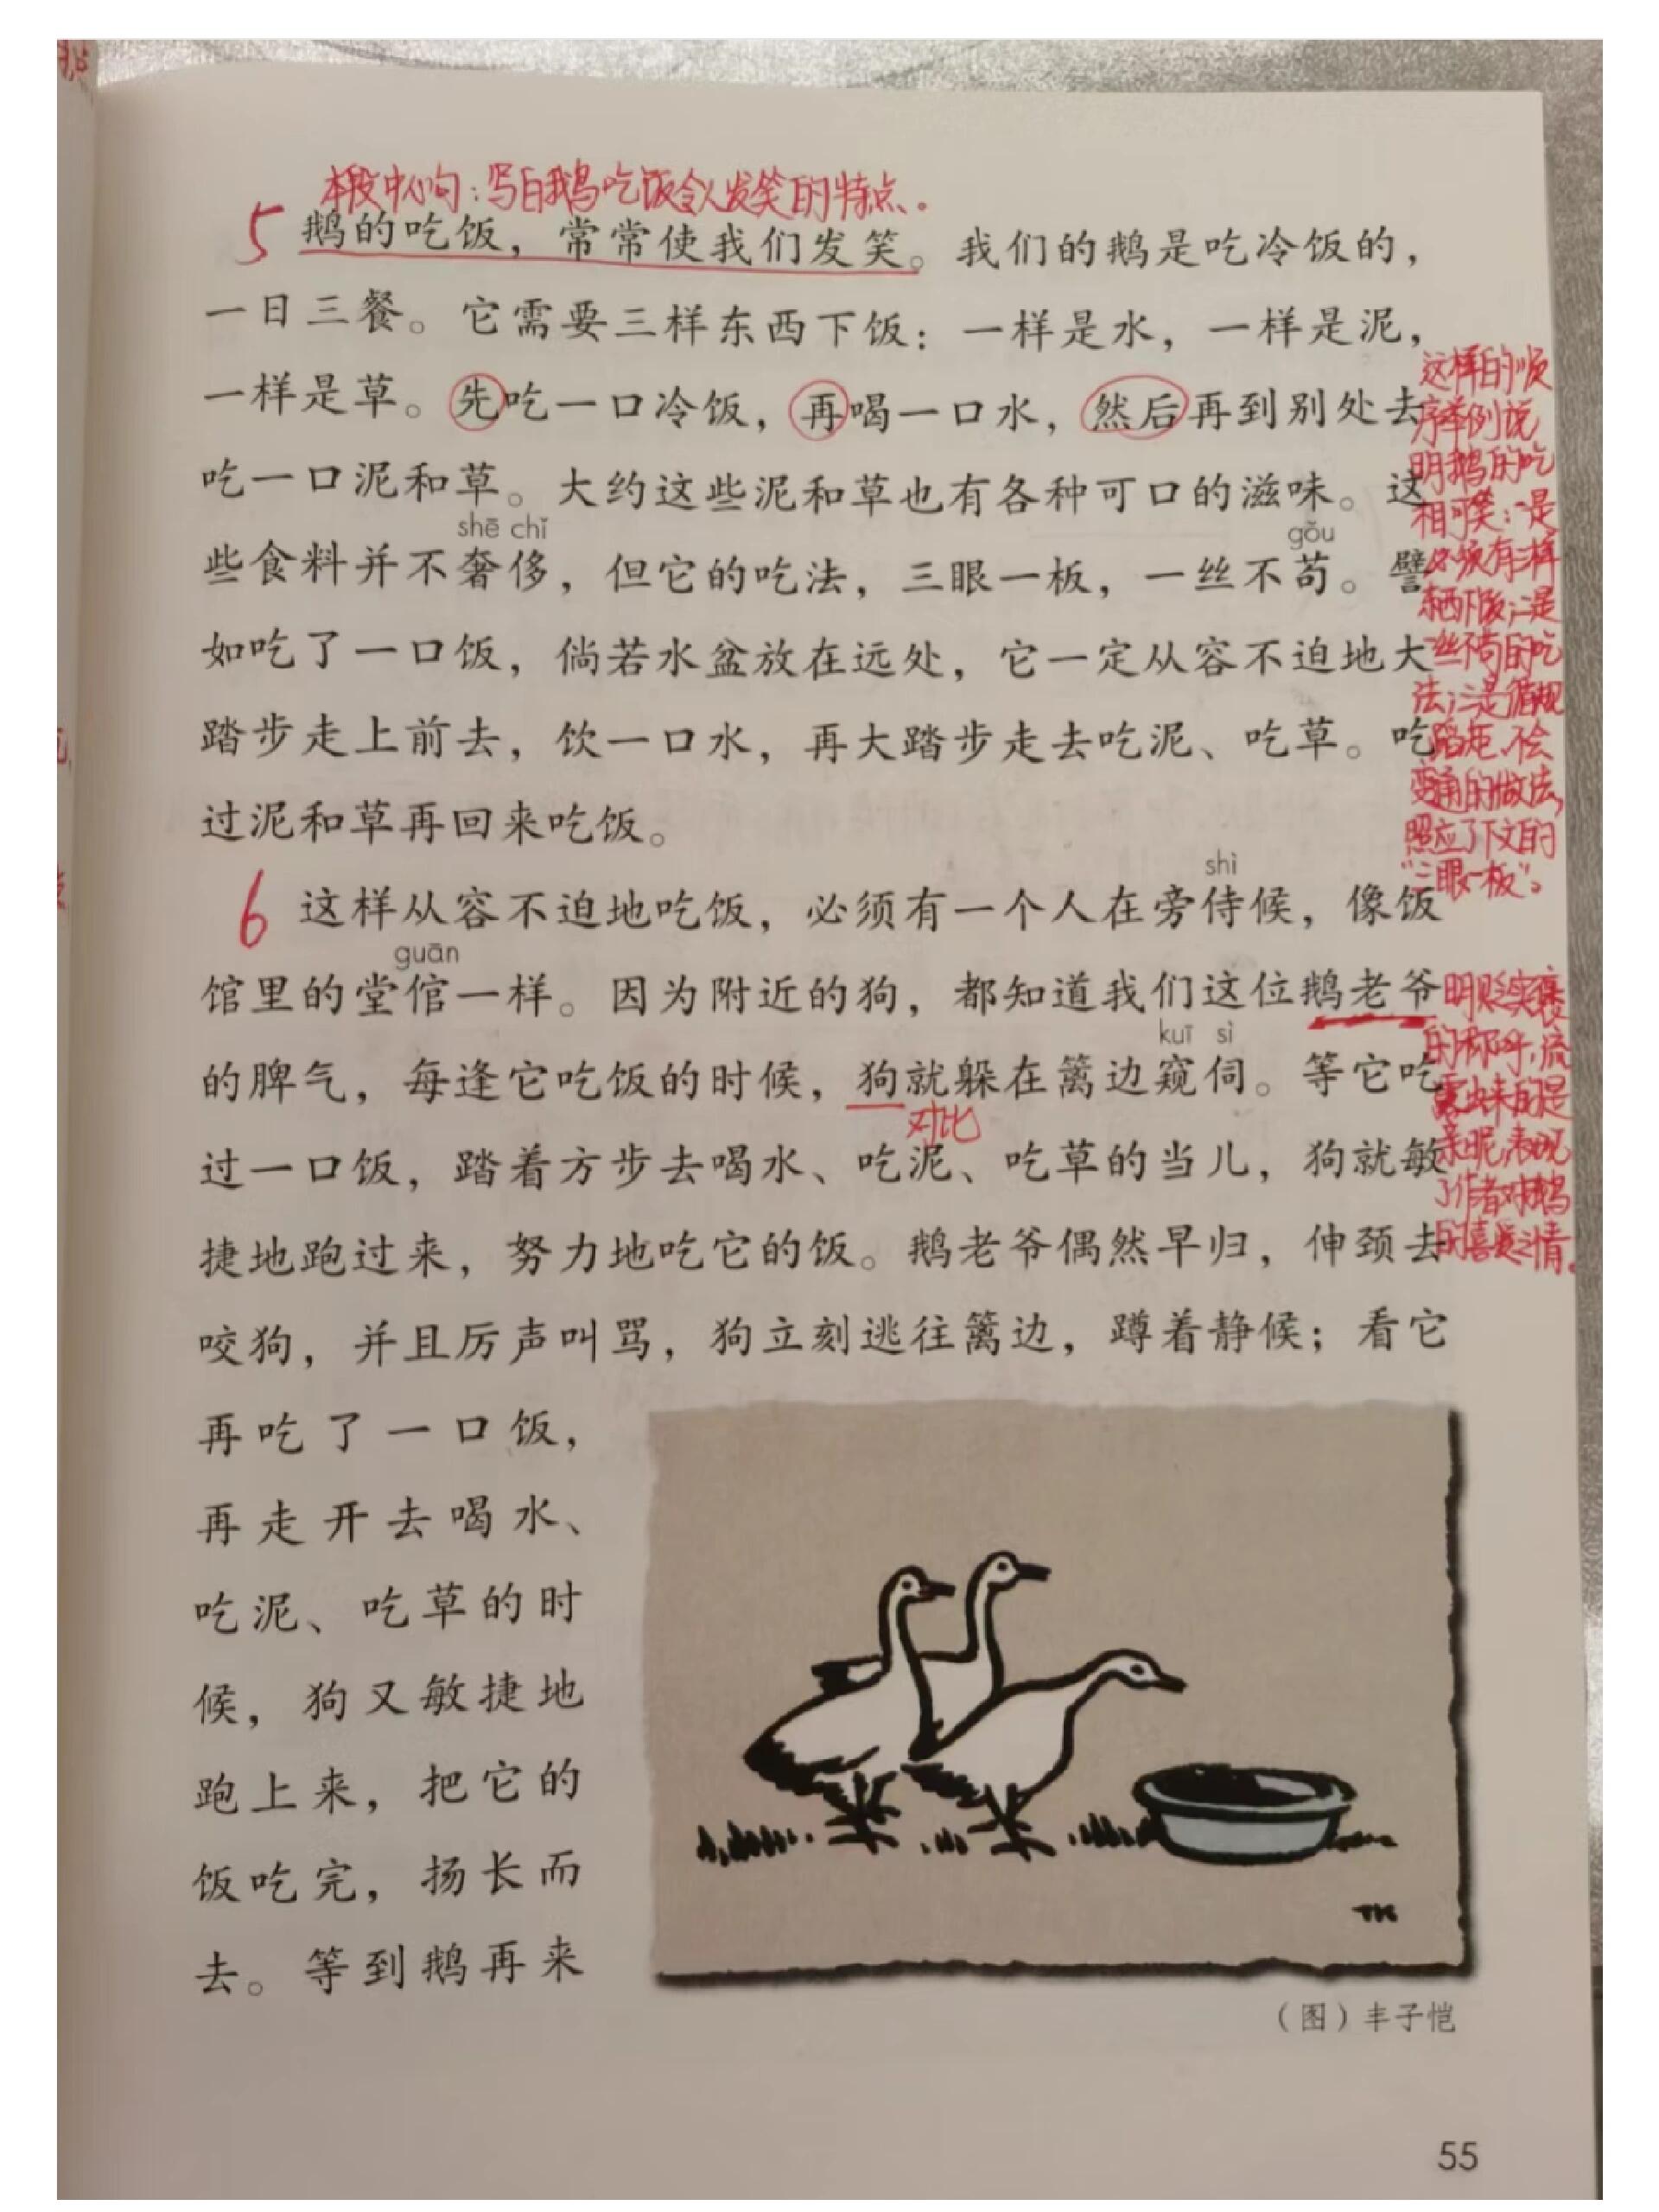 本段中心句：写白鹅吃饭令人发笑的特点。
5 鹅的吃饭，常常使我们发笑。我们的鹅是吃冷饭的，
一日三餐。它需要三样东西下饭：一样是水，一样是泥，
一样是草。先吃一口冷饭，再喝一口水，然后再到别处去
吃一口泥和草。大约这些泥和草也有各种可口的滋味。这
shē chǐ
gǒu
些食料并不奢侈，但它的吃法，三眼一板，一丝不苟。譬
如吃了一口饭，倘若水盆放在远处，它一定从容不迫地大
踏步走上前去，饮一口水，再大踏步走去吃泥、吃草。吃
过泥和草再回来吃饭。
这样的顺
序举例说
明鹅的吃
相可笑：一是
必须有三样
东西下饭；二是
一丝不苟的吃
法；三是循规
蹈矩、不会
变通的做法，
照应了下文的
“三眼一板”。
shì
6 这样从容不迫地吃饭，必须有一个人在旁侍候，像饭
guān
馆里的堂倌一样。因为附近的狗，都知道我们这位鹅老爷
kuī sì
的脾气，每逢它吃饭的时候，狗就躲在篱边窥伺。等它吃
对比
过一口饭，踏着方步去喝水、吃泥、吃草的当儿，狗就敏
捷地跑过来，努力地吃它的饭。鹅老爷偶然早归，伸颈去
咬狗，并且厉声叫骂，狗立刻逃往篱边，蹲着静候；看它
再吃了一口饭，
再走开去喝水、
吃泥、吃草的时
候，狗又敏捷地
跑上来，把它的
饭吃完，扬长而
去。等到鹅再来
明贬实褒
的称呼，流
露出来的是
亲昵，表现
了作者对鹅
的喜爱之情。
TK
（图）丰子恺
55